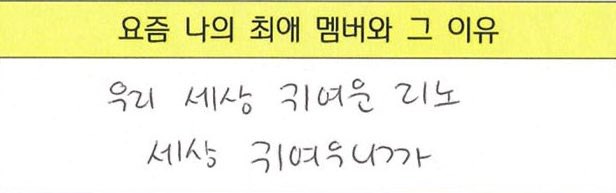 요즘 나의 최애 멤버와 그 이유
우리 세상 귀여운 리노
세상 귀여우니까